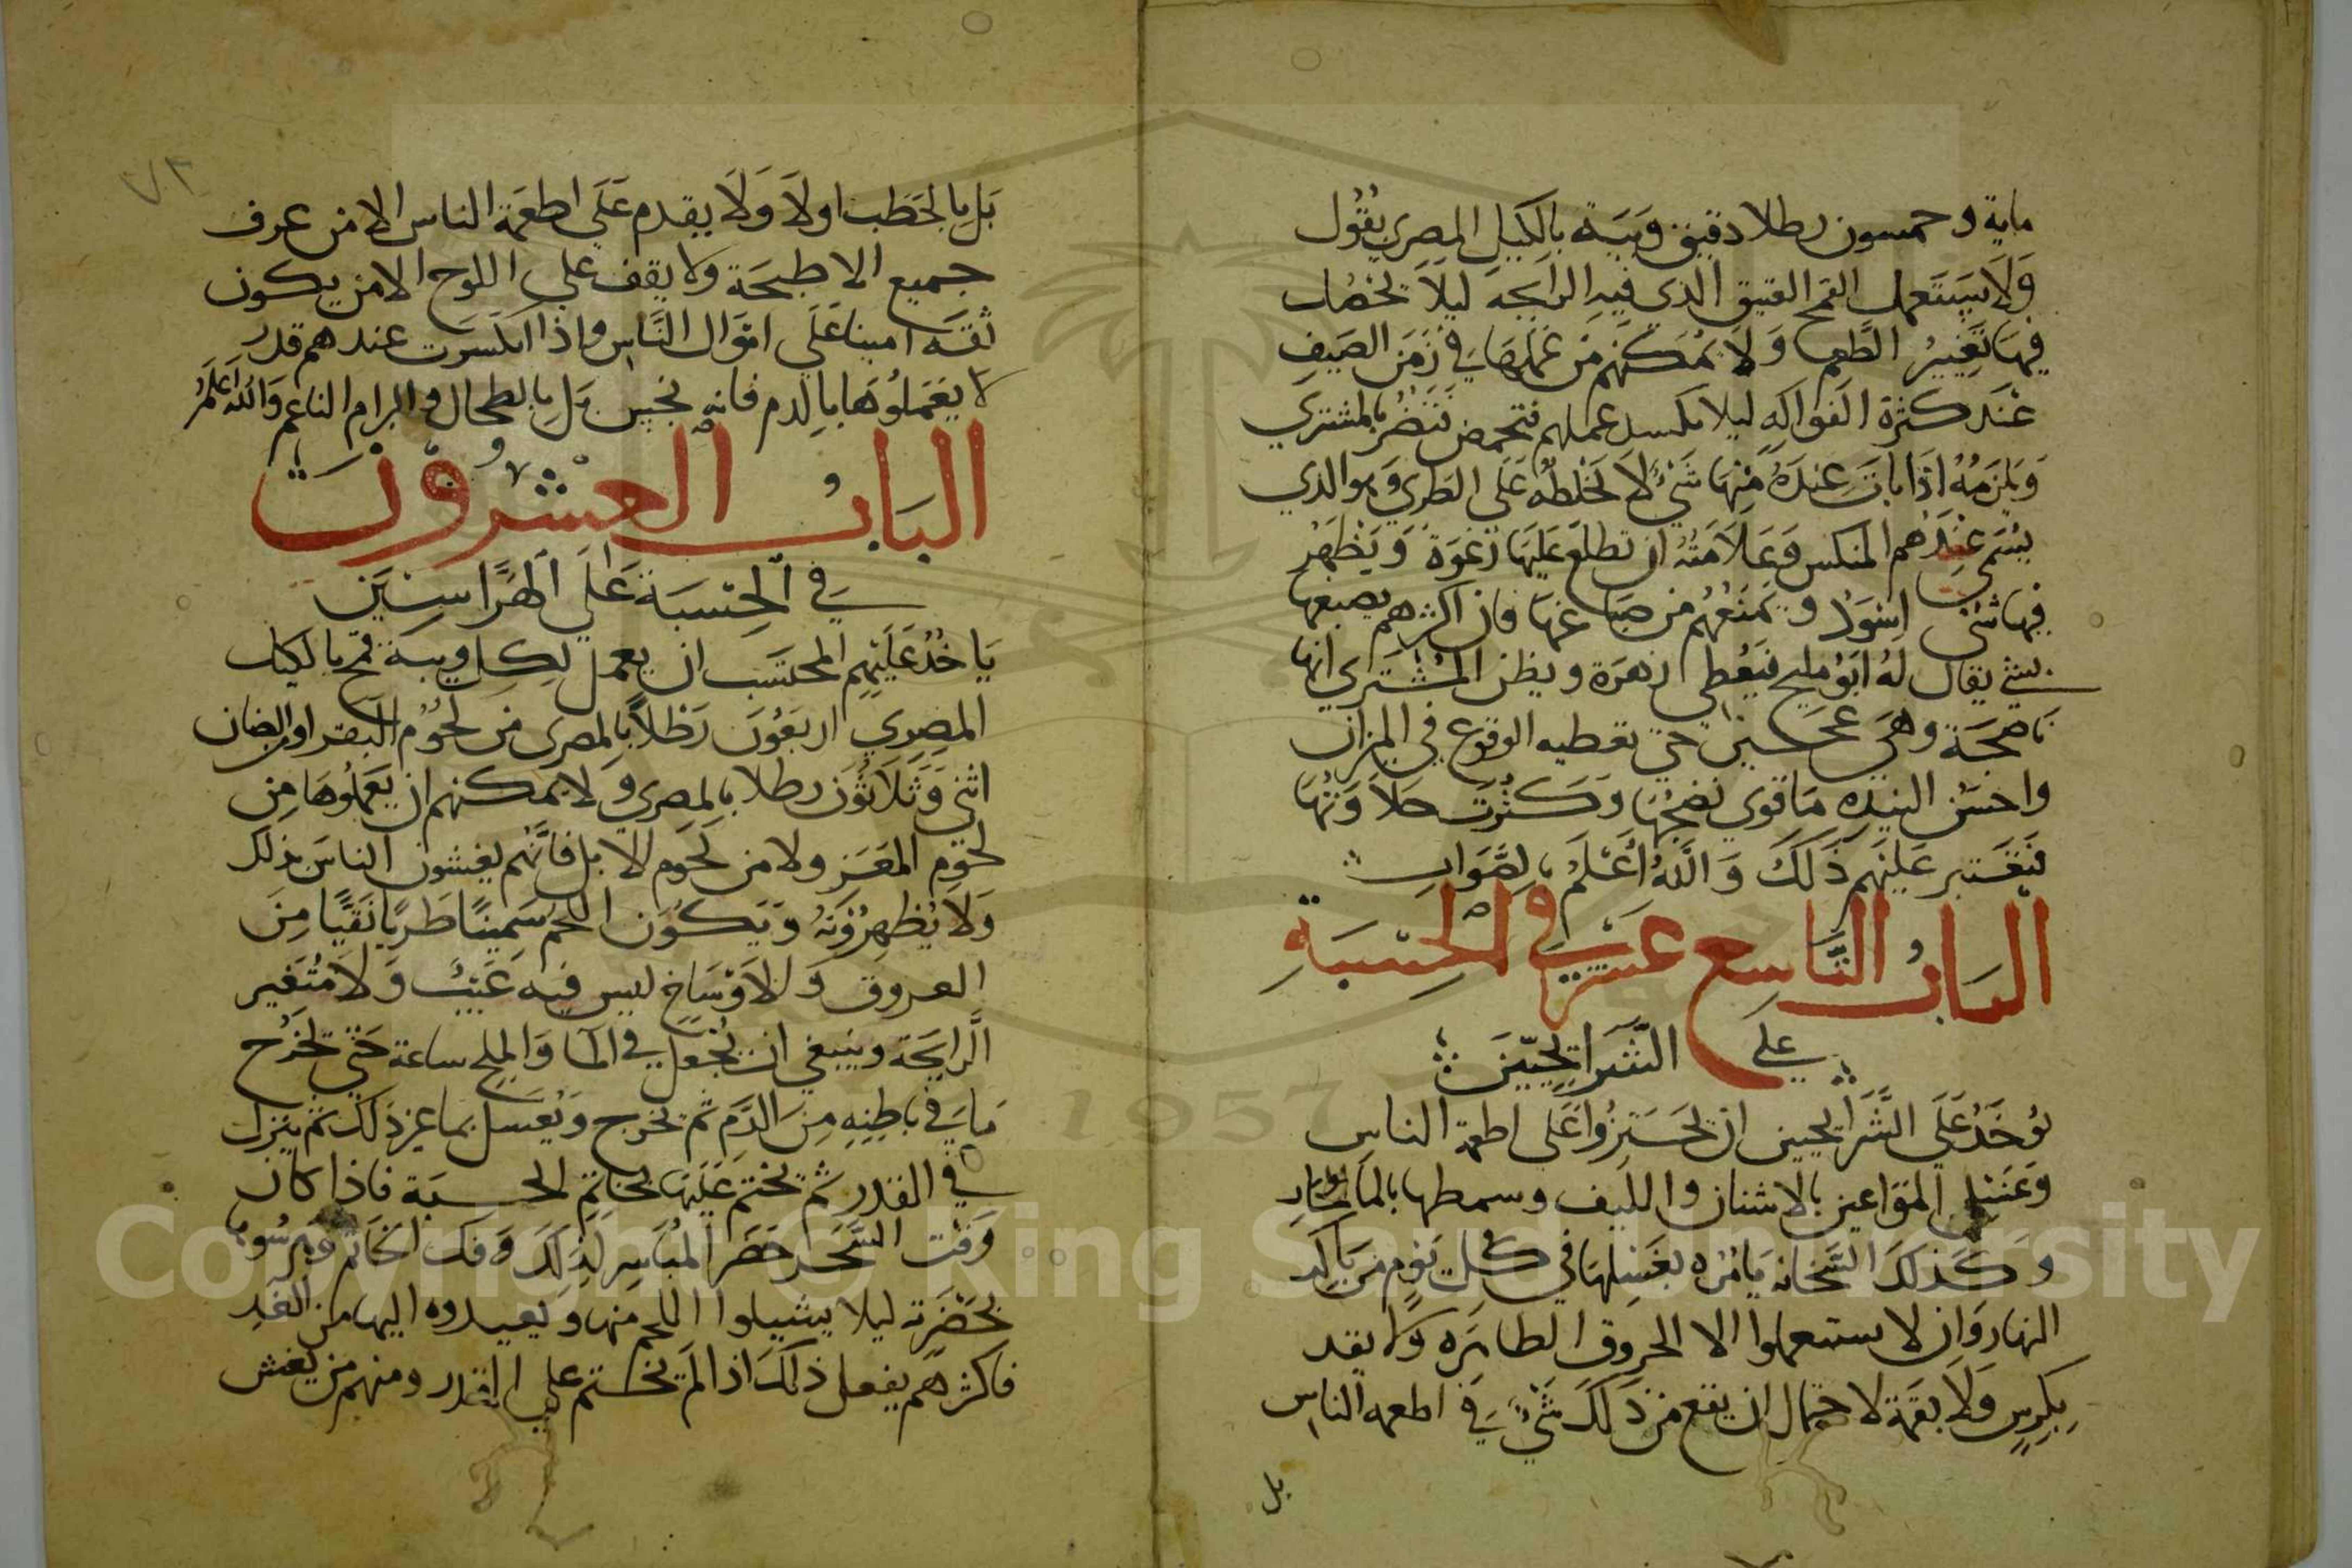 ماية وخمسون رطلا دقيق وَيبَة بالكَيل المصري يقُول
وَلَا يَستَعمل القمح العتيق الذي فيه الرايحَة ليلاَ يحصل
فيهَا تغيير الطَّعم وَلَا يمُكنهم مَن عَملهَا فِي زَمَن الصَيفِ
عنَد كثرة الفواكِه ليلا يكسد عملهم فتحمض فتضُر بالمشتري
وَيلزَمُهُ اذَا بات عِندَهُ مِنهَا شَيءٌ لَا يخلطُه عَلَى الطري وَهوَ الذي
يسُمى عِندَهم المنكس وَعَلاَمَتُهُ ان تطلعَ عَليَها رَغوَة وَيَظهَرُ
فيها شئ اسَودْ وَيمنَعُهُم من صباغهَا فان اكثرهم يصبعها
بشئ يقال لهُ ابَوُ مليح فَيعُطي زهرَة ويظن المشُتَري انها
نَاضجَة وهَي عجين حتي تعطيه الوقوع في الميزان
واحسَن النيده مَا قوي نضجُهَا وَكثُرت حلاَوَتُهَا
فيَعَتبر عَليَهم ذَلَكَ وَاللهُ اُعَلمُ بالصَّوَابِ
البَابُ التَّاسِع عشَر في الحِسبَةِ
علَى الشَرايحيّين
يُؤخَذُ عَلَى الشَّرَايحيين ان يحَتَرِزُوا عَلَى اطعمة الناسِ
وَغَسَل المَوَاعين بالاشنان والليف وسمطها بالماء الحَار
وَكَذلَكَ السَّخانه يَامُره بغَسلِهَا في كل يَوم مَن بَاكَر
النهار وَان لا يستعملوا الا الحروق الطاهِرَه ولا يقد
بكِرسٍ وَلاَ بقمَة لاحتمال ان يقع من ذَلَكَ شَيٌ فِي اطعمه النّاسِ
بل
٧٣
بَل بالحَطَب اولاَ وَلَا يقدم عَلَي اطعمَة الناس الا من عرف
جميع الاطبحَة ولا يقف علي اللوح الا من يكون
ثقَه امينا عَلَي امَوَال النَّاس واذا انكسَرت عندهم قدر
لا يَعَملُوهَا بالدم فانه نجس بَل بالطحال والبرام الناعم وَاللهُ اَعلَمُ
البَابُ العشْرُونَ
فِي الحِسْبَة عَلَي الهَرّاسِيّين
يَاخُذ عَليَهِم المحتَسَب ان يعمل لكِل ويبة قمح بالكيل
المصِري اربَعُونَ رَطلاً بالمصري مَن لحُوُم البقر او الضان
اثني وَثلاَثُوَن رطلا بالمصري ولا يمكنهم ان يَعَملُوهَا مِن
لحُوم المعَز ولا من لحَوم الابل فانَّهُم يغشون الناسَ بذلك
وَلَا يُظهِرُوُنَهُ وَيَكوُن اللّحمُ سَمِينًا طَريًا نَقيًّا مِنَ
العروق وَالاَوَسَاخِ ليس فيه عَيَبٌ وَلَا مُتَغَير
الَّرايحَة وينبغي ان يجُعَل في الما وَالملح ساعة حَتي تخَرُج
مَا في بَاطنِهِ مِنَ الدَّمِ ثم يخرج وَيغُسَل بما غير ذلَك ثم ينزل
في القدر ثم يختم عَليَهَا بخَاتِم الحسبَة فاذا كان
وَقت السَّحَر حَضَر المبُاشِر لذلَكَ وَفك الخَاتَم وَهرسُوهَا
بحَضَرته ليلا يشيلوا اللحم منها وَيعيدوه اليها من الغَدِ
فاكثرهم يفعل ذلَكَ اذا لَم يختم علي القدر ومنهم من يغش